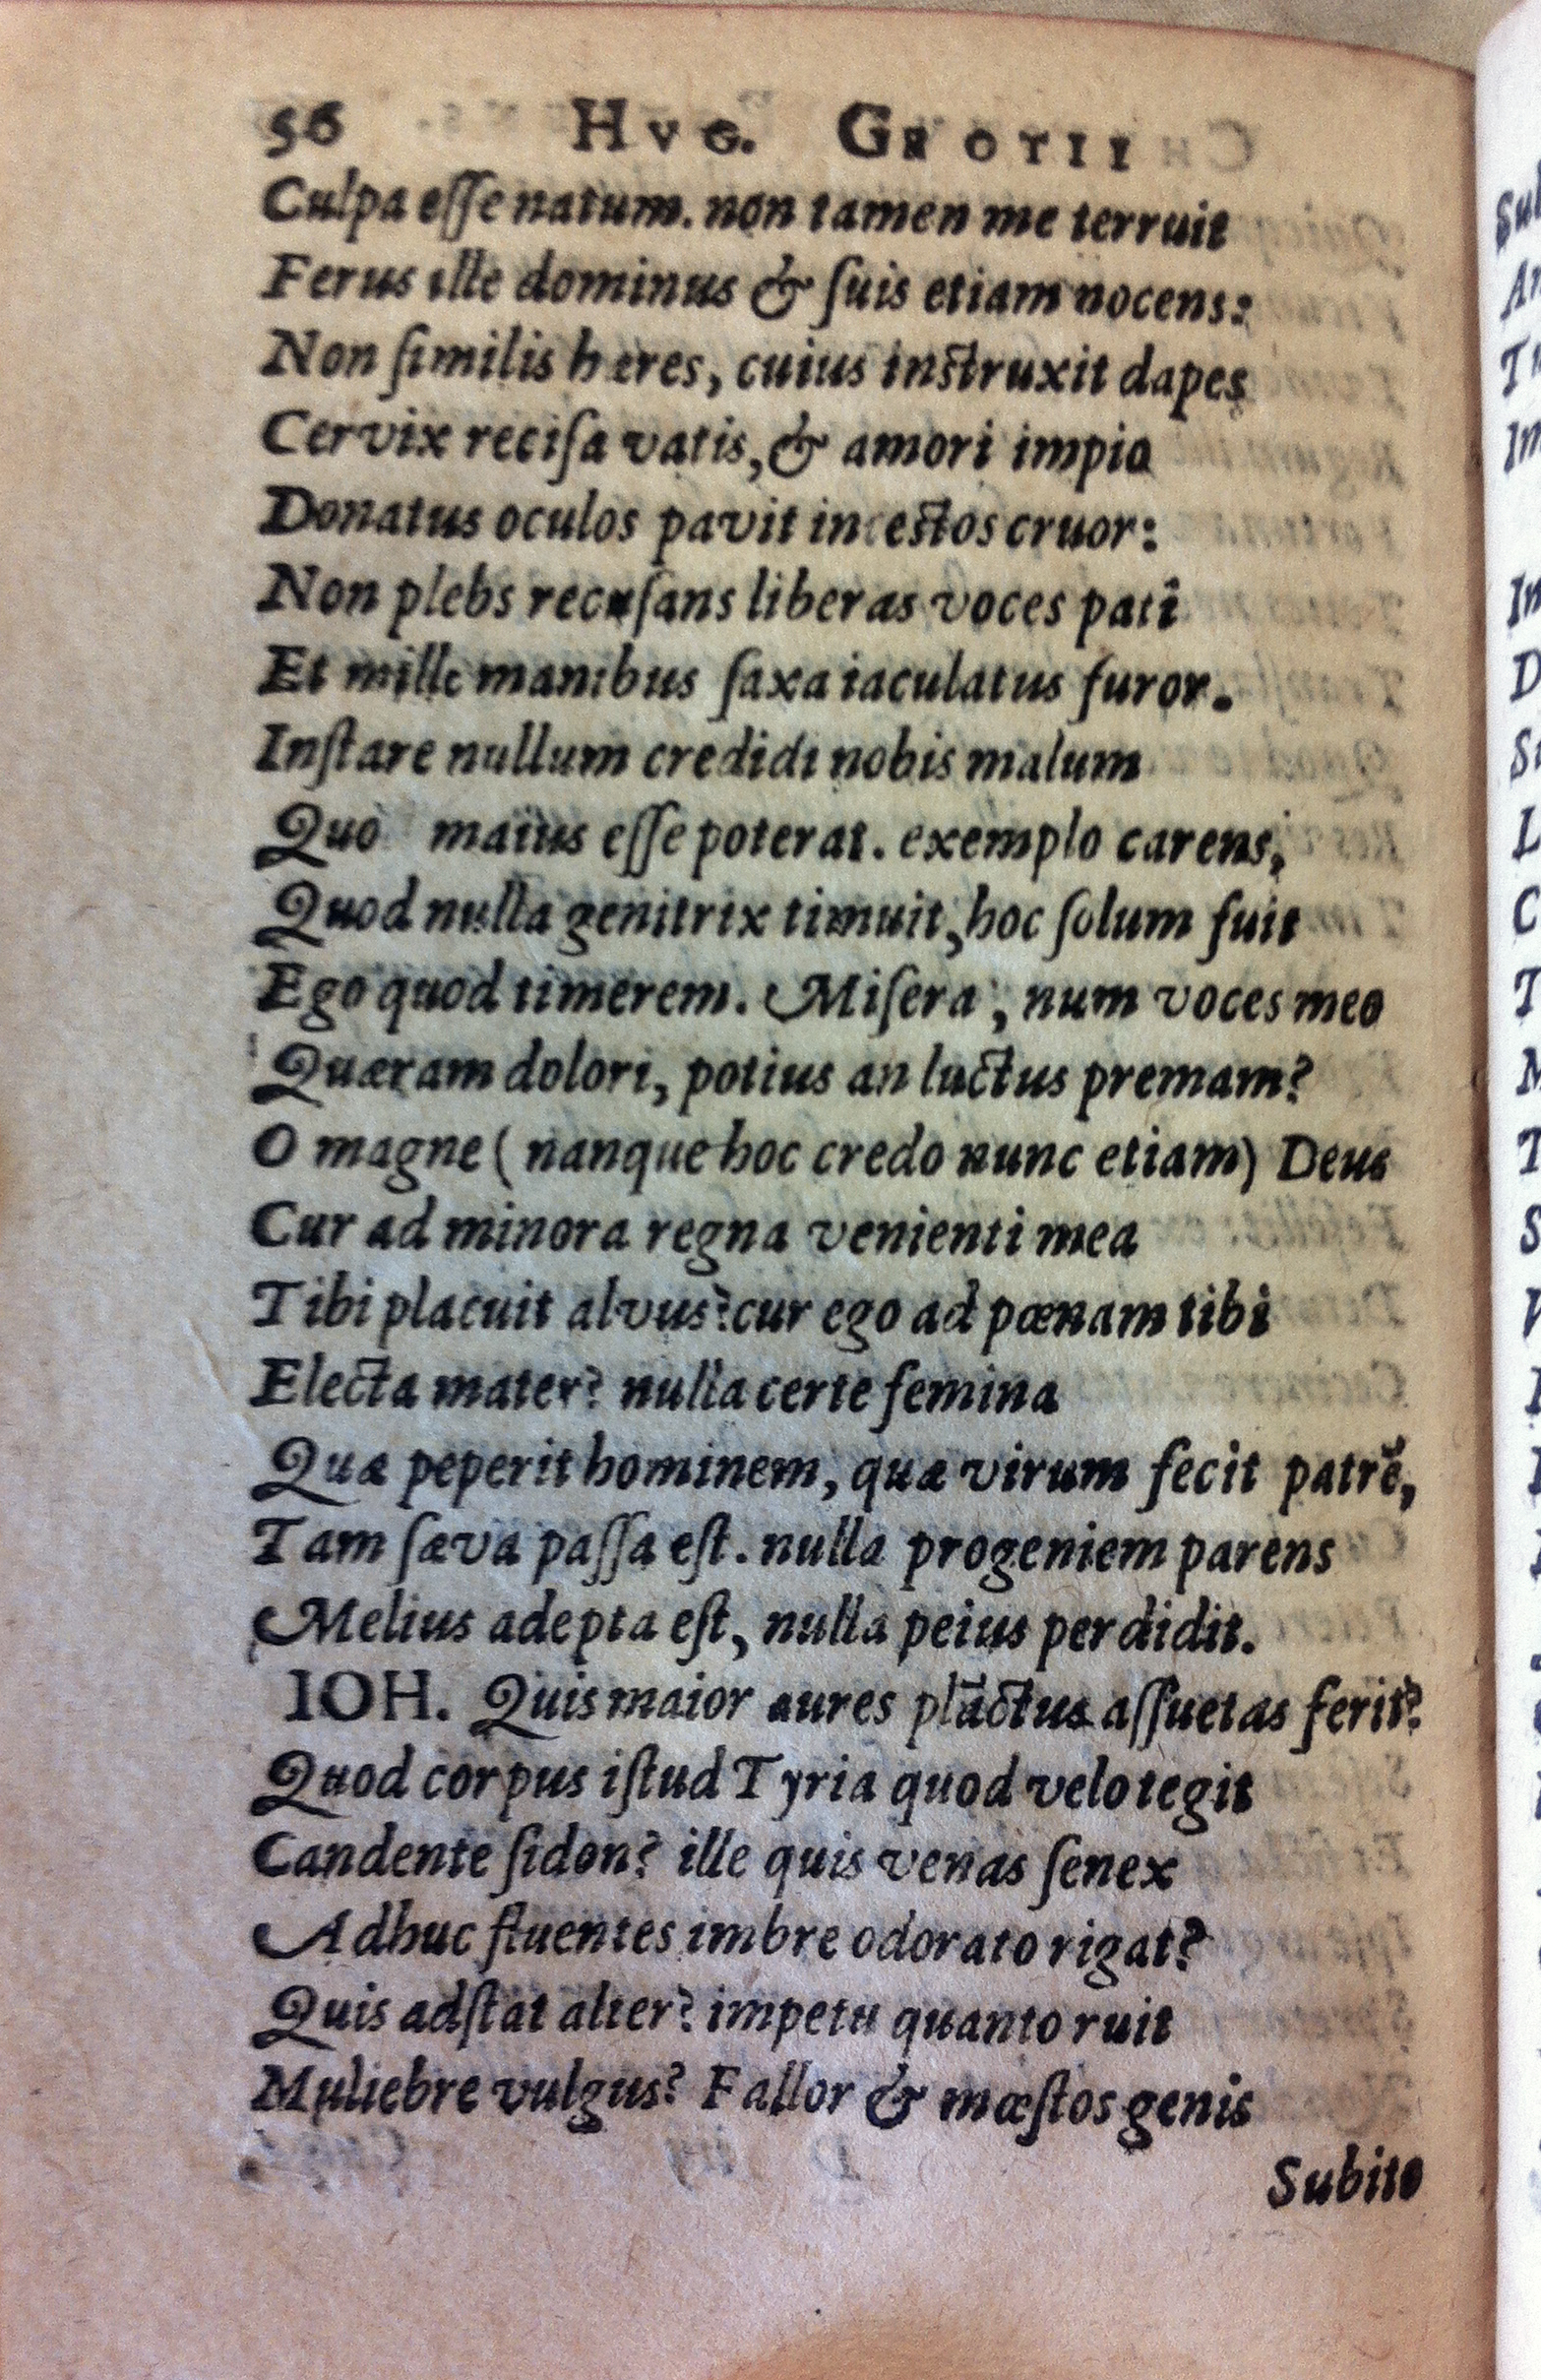 56 HVG. GROTII
Culpa eſſe natum. non tamen me terruit
Ferus ille dominus & ſuis etiam nocens:
Non ſimilis hæres, cuius inſtruxit dapes
Cervix reciſa vatis, & amori impio
Donatus oculos pavit inceſtos cruor:
Non plebs recuſans liberas voces pati
Et mille manibus ſaxa iaculatus furor.
Inſtare nullum credidi nobis malum
Quo maius eſſe poterat. exemplo carens,
Quod nulla genitrix timuit, hoc ſolum fuit
Ego quod timerem. Miſera, num voces meo
Quæram dolori, potius an luctus premam?
O magne (nanque hoc credo nunc etiam) Deus
Cur ad minora regna venienti mea
Tibi placuit alvus? cur ego ad pœnam tibi
Electa mater? nulla certe femina
Quæ peperit hominem, quæ virum fecit patrẽ,
Tam ſæva paſſa eſt. nulla progeniem parens
Melius adepta eſt, nulla peius perdidit.
IOH. Quis maior aures plāctus aſſuetas ferit?
Quod corpus iſtud Tyria quod velo tegit
Candente ſidon? ille quis venas ſenex
Adhuc fluentes imbre odorato rigat?
Quis adſtat alter? impetu quanto ruit
Muliebre vulgus? Fallor & mœſtos genis
Subito